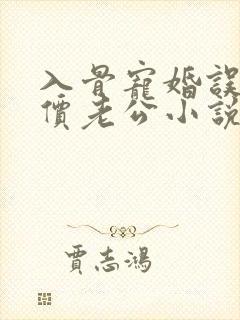 入骨寵婚誤
價老公小說
賈志鴻